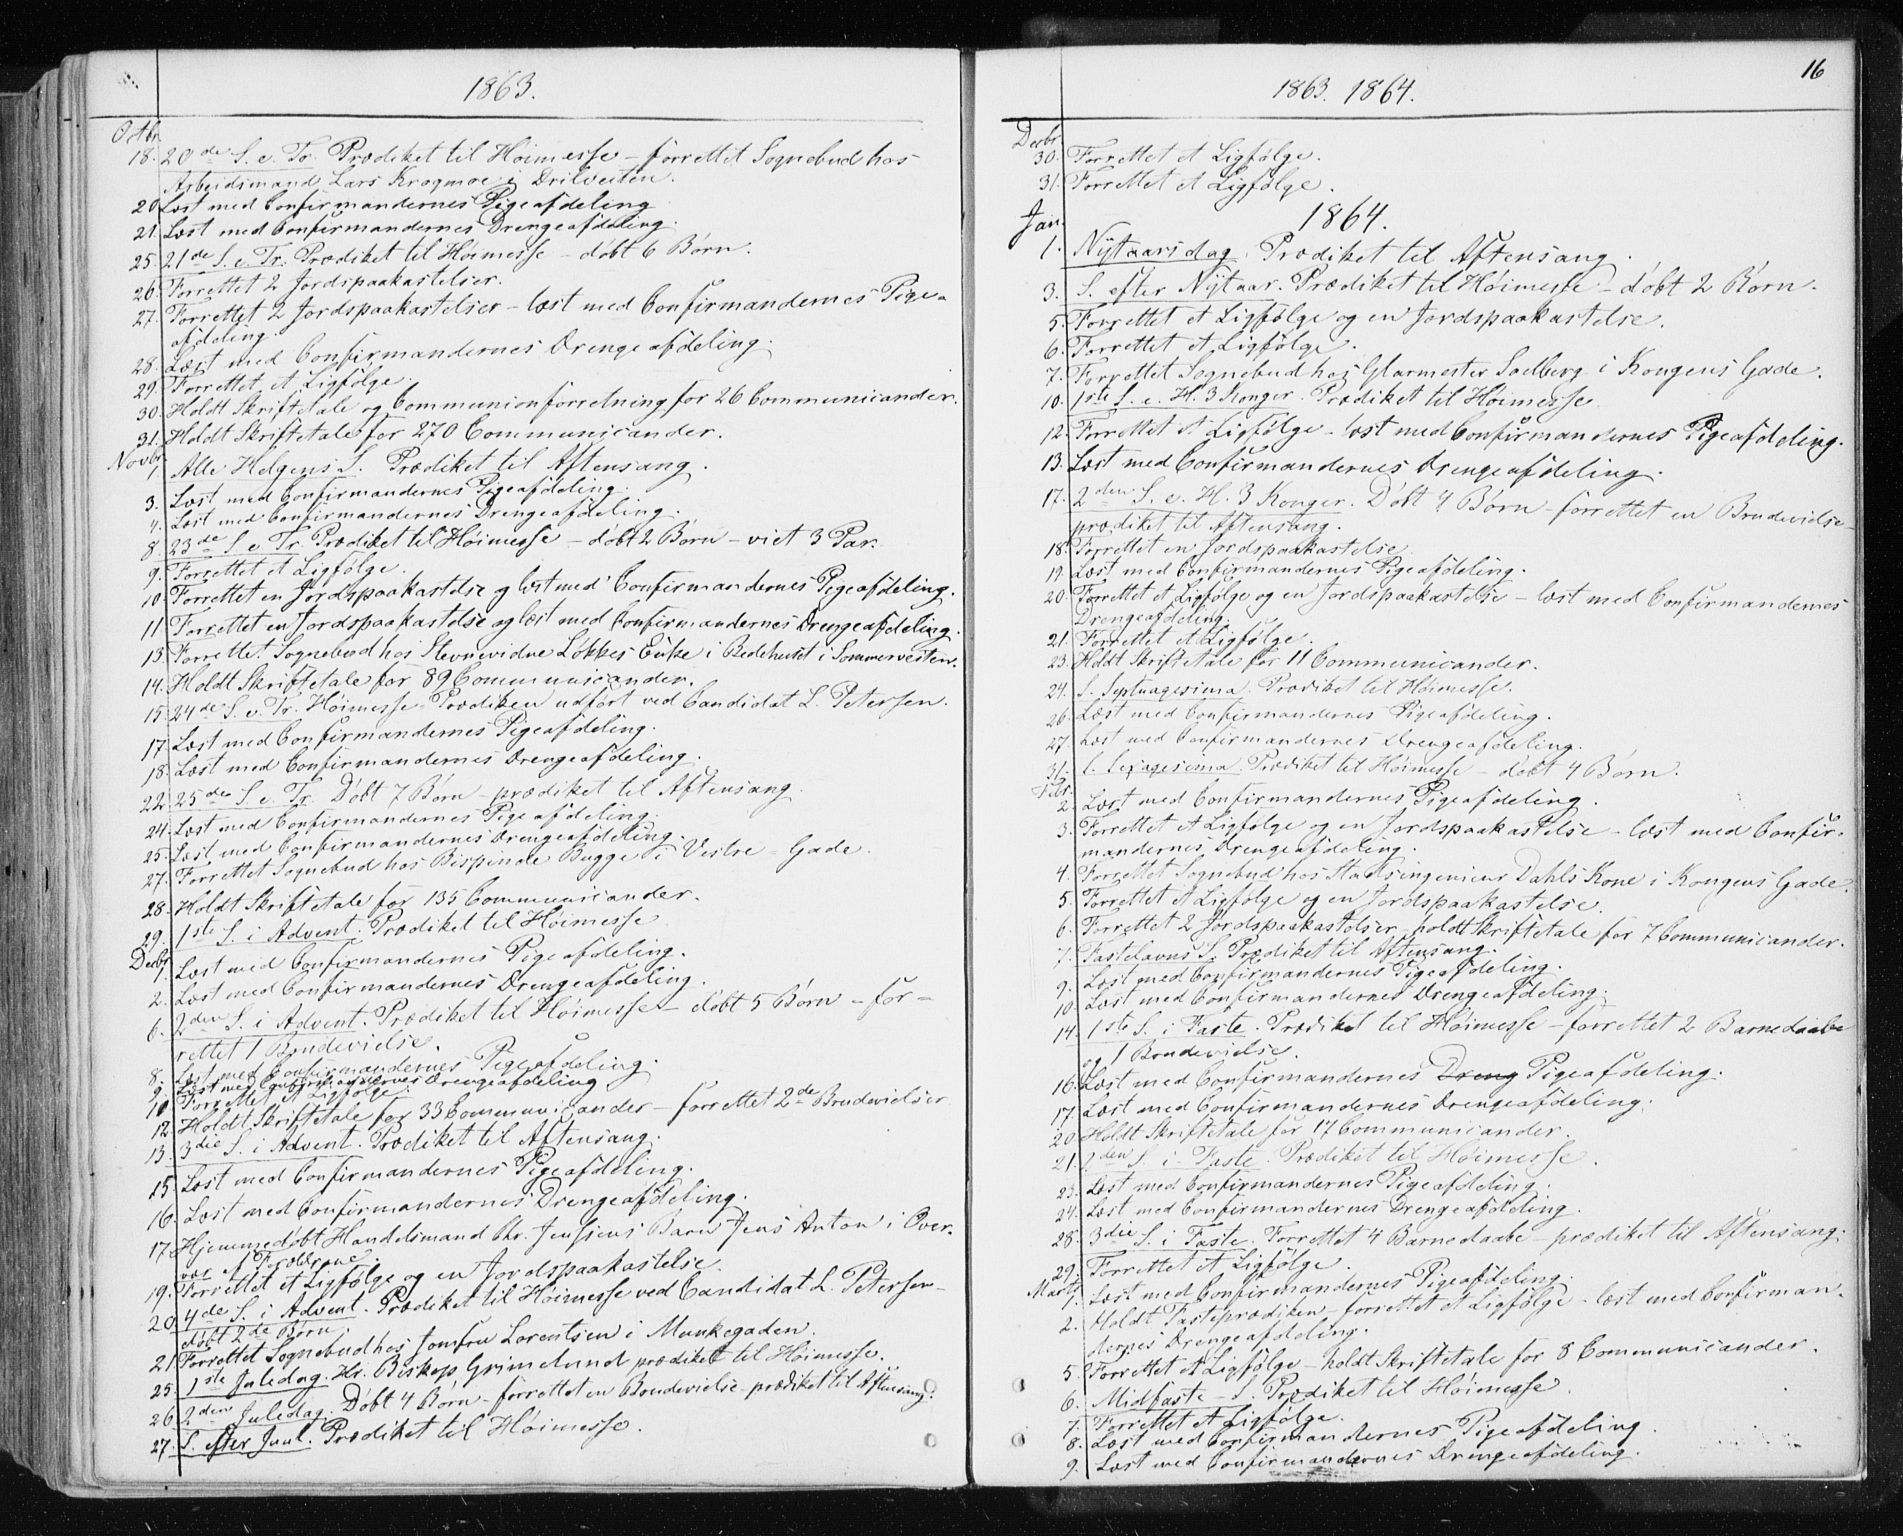 1863.
Octbr
18. 20de S. e. Tr. Prædiket til Høimesse – forrettet Sognebud hos
Arbeidsmand Lars Krogmoe i Drilveiten.
20. Læst med Confirmandernes Pigeafdeling
21. Læst med Confirmandernes Drengeafdeling.
25. 21de S. e. Tr. Prædiket til Høimesse – døbt 6 Børn.
26. Forrettet 2 Jordspaakastelser.
27. Forrettet 2 Jordspaakastelser – læst med Confirmandernes Pige-
afdeling.
28. Læst med Confirmandernes Drengeafdeling.
29. Forrettet et Ligfølge.
30. Holdt Skriftetale og Communionforretning for 26 Communicander.
31. Holdt Skriftetale for 270 Communicander.
Novbr
1. Alle Helgens S. Prædiket til Aftensang.
3. Læst med Confirmandernes Pigeafdeling.
4. Læst med Confirmandernes Drengeafdeling.
8. 23de S. e. Tr. Prædiket til Høimesse – døbt 2 Børn – viet 3 Par.
9. Forrettet et Ligfølge.
10. Forrettet en Jordspaakastelse og læst med Confirmandernes Pigeafdeling.
11. Forrettet en Jordspaakastelse og læst med Confirmandernes Drengeafdeling.
13. Forrettet Sognebud hos Løkkes Enke i Bedehuset i Sommerveiten.
14. Holdt Skriftetale for 89 Communicander.
15. 24de S. e. Tr. Høimesse-Prædiken udført ved Candidat L. Petersen.
17. Læst med Confirmandernes Pigeafdeling.
18. Læst med Confirmandernes Drengeafdeling.
22. 25de S. e. Tr. Døbt 7 Børn – prædiket til Aftensang.
24. Læst med Confirmandernes Pigeafdeling.
25. Læst med Confirmandernes Drengeafdeling.
27. Forrettet Sognebud hos Bispinde Bugge i Vestre-Gade.
28. Holdt Skriftetale for 135 Communicander.
29. 1ste S. i Advent. Prædiket til Høimesse
Decbr
1. Læst med Confirmandernes Pigeafdeling.
2. Læst med Confirmandernes Drengeafdeling.
6. 2den S. i Advent. Prædiket til Høimesse – døbt 5 Børn – for-
rettet 1 Brudevielse.
8. Læst med Confirmandernes Pigeafdeling.
9. Læst med Confirmandernes Drengeafdeling
10. Forrettet et Ligfølge.
12. Holdt Skriftetale for 33 Communicander – forrettet 2de Brudevielser
13. 3die S. i Advent. Prædiket til Aftensang.
15. Læst med Confirmandernes Pigeafdeling.
16. Læst med Confirmandernes Drengeafdeling.
17. Hjemmedøbt Handelsmand Chr. Jenssens Barn Jens Anton i Over-
vær af Forældrene
19. Forrettet et Ligfølge og en Jordspaakastelse.
20. 4de S. i Advent. Prædiket til Høimesse ved Candidat L. Petersen –
døbt 2de Børn
21. Forrettet Sognebud hos Jomfru Lorentsen i Munkegaden.
25. 1ste Juledag. Hr. Biskop Grimelund prædiket til Høimesse.
26. 2den Juledag. Døbt 4 Børn – forrettet en Brudevielse – prædiket til Aftensang.
27. S. efter Juul. Prædiket til Høimesse.
1863. 1864.
16
Decbr
30. Forrettet et Ligfølge.
31. Forrettet et Ligfølge.
1864.
Jan.
1. Nytaarsdag. Prædiket til Aftensang.
3. S. efter Nytaar. Prædiket til Høimesse – døbt 2 Børn.
5. Forrettet et Ligfølge og en Jordspaakastelse.
6. Forrettet et Ligfølge.
7. Forrettet Sognebud hos Glarmester Soelberg i Kongens Gade.
10. 1ste S. e. H. 3 Konger. Prædiket til Høimesse.
12. Forrettet et Ligfølge – læst med Confirmandernes Pigeafdeling.
13. Læst med Confirmandernes Drengeafdeling.
17. 2den S. e. H. 3 Konger. Døbt 4 Børn – forrettet en Brudevielse –
prædiket til Aftensang.
18. Forrettet en Jordspaakastelse.
19. Læst med Confirmandernes Pigeafdeling.
20. Forrettet et Ligfølge og en Jordspaakastelse – læst med Confirmandernes
Drengeafdeling.
21. Forrettet et Ligfølge.
23. Holdt Skriftetale for 11 Communicander.
24. S. Septuagesima. Prædiket til Høimesse.
26. Læst med Confirmandernes Pigeafdeling.
27. Læst med Confirmandernes Drengeafdeling.
31. S. Sexagesima. Prædiket til Høimesse – døbt 4 Børn.
Febr.
2. Læst med Confirmandernes Pigeafdeling.
3. Forrettet et Ligfølge og en Jordspaakastelse – læst med Confir-
mandernes Drengeafdeling.
4. Forrettet Sognebud hos Stadsingenieur Dahls Kone i Kongens Gade.
5. Forrettet et Ligfølge og en Jordspaakastelse.
6. Forrettet 2 Jordspaakastelser, holdt Skriftetale for 7 Communicander.
7. Fastelavns S. Prædiket til Aftensang.
9. Læst med Confirmandernes Pigeafdeling.
10. Læst med Confirmandernes Drengeafdeling.
14. 1ste S. i Faste. Prædiket til Høimesse – forrettet 2 Barnedaabe
og 1 Brudevielse.
16. Læst med Confirmandernes Dreng Pigeafdeling.
17. Læst med Confirmandernes Drengeafdeling.
20. Holdt Skriftetale for 17 Communicander.
21. 2den S. i Faste. Prædiket til Høimesse.
23. Læst med Confirmandernes Pigeafdeling.
24. Læst med Confirmandernes Drengeafdeling.
28. 3die S. i Faste. Forrettet 4 Barnedaabe – prædiket til Aftensang.
29. Forrettet et Ligfølge.
Marts
1. Læst med Confirmandernes Pigeafdeling.
2. Holdt Fasteprædiken – forrettet et Ligfølge – læst med Confirman-
dernes Drengeafdeling.
5. Forrettet et Ligfølge – holdt Skriftetale for 8 Communicander.
6. Midfaste-S. Prædiket til Høimesse.
7. Forrettet et Ligfølge.
8. Læst med Confirmandernes Pigeafdeling.
9. Læst med Confirmandernes Drengeafdeling.